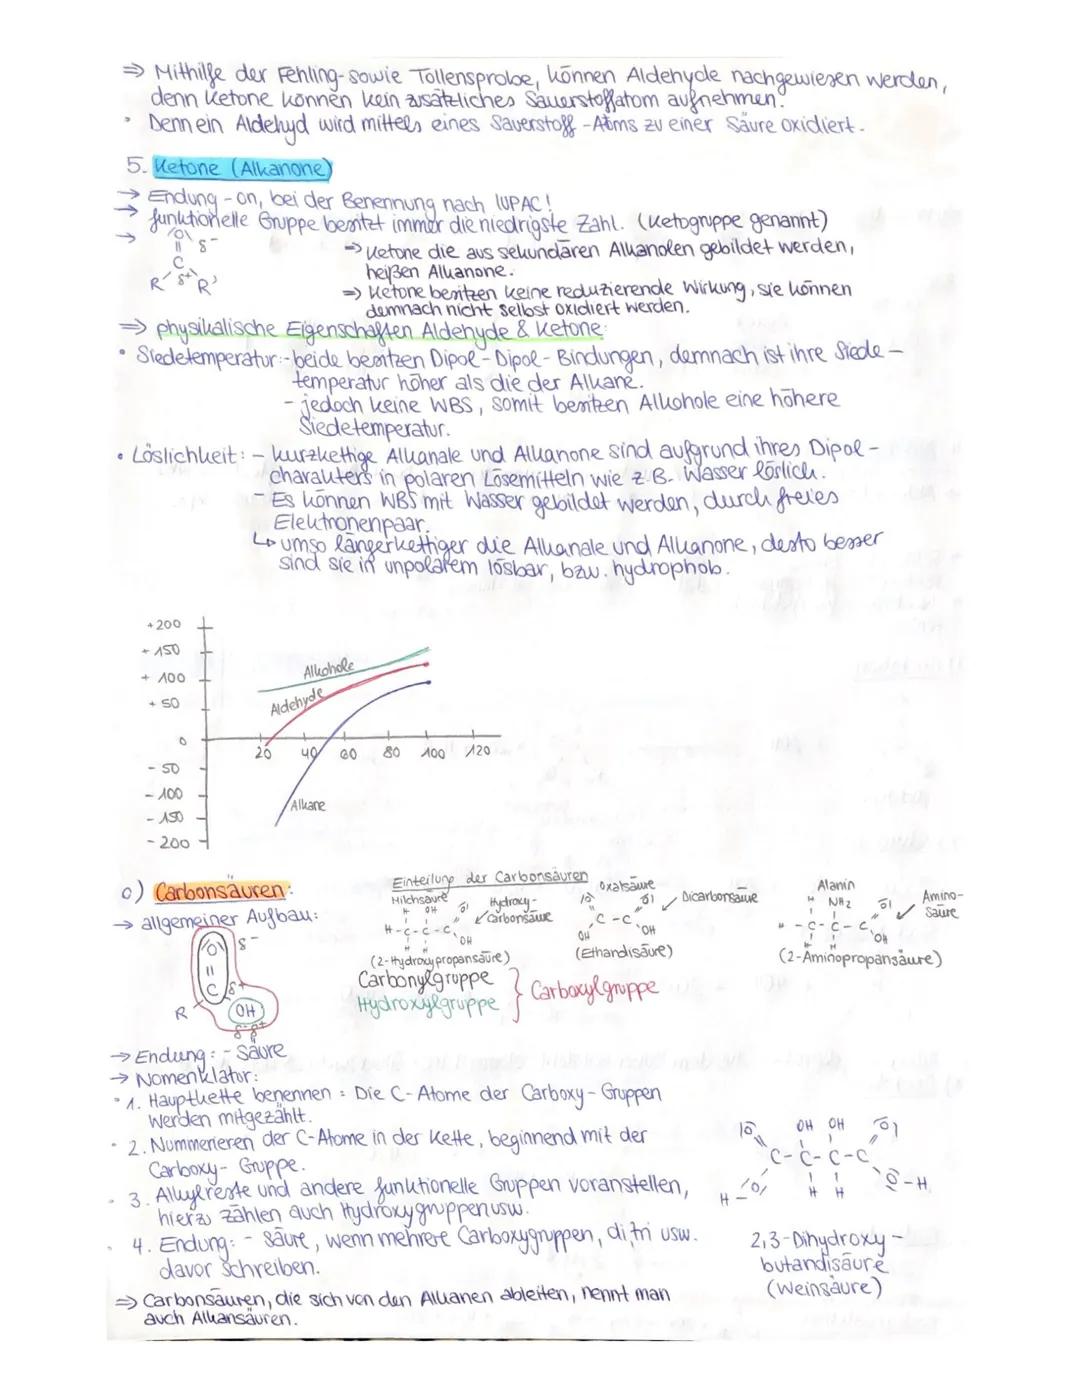 ⇒ Mithilfe der Fehling-sowie Tollensprobe, können Aldehyde nachgewiesen werden,
denn Ketone können kein zusätzliches Sauerstoffatom aufnehmen.
• Denn ein Aldehyd wird mittels eines Sauerstoff-Atoms zu einer Säure oxidiert.
5. Ketone (Alkanone)
→ Endung -on, bei der Benennung nach IUPAC!
→ funktionelle Gruppe besitzt immer die niedrigste Zahl. (Ketogruppe genannt)
→ O δ-
C
R δ+ R'
⇒ Ketone die aus sekundären Alkanolen gebildet werden,
heißen Alkanone.
⇒ Ketone besitzen keine reduzierende Wirkung, sie können
demnach nicht selbst oxidiert werden.
⇒ physikalische Eigenschaften Aldehyde & Ketone:
• Siedetemperatur: - beide besitzen Dipol-Dipol-Bindungen, demnach ist ihre Siede-
temperatur höher als die der Alkane.
- jedoch keine WBS, somit besitzen Alkohole eine höhere
Siedetemperatur.
• Löslichkeit: - kurzkettige Alkanale und Alkanone sind aufgrund ihres Dipol-
charakters in polaren Lösemitteln wie z.B. Wasser löslich.
- Es können WBS mit Wasser gebildet werden, durch freies
Elektronenpaar.
↳ umso längerkettiger die Alkanale und Alkanone, desto besser
sind sie in unpolarem lösbar, bzw. hydrophob.
+200
+150
+100
+50
0
-50
-100
-150
-200
20 40 60 80 100 120
Alkohole
Aldehyde
Alkane
c) Carbonsäuren:
→ allgemeiner Aufbau:
O δ-
C δ+
R OH
δ- δ+
Einteilung der Carbonsäuren
Milchsäure
H OH O
H-C-C-C
H H OH
Hydroxy-
carbonsäure
(2-Hydroxypropansäure)
Oxalsäure
O O
C-C
OH OH
Dicarbonsäure
(Ethandisäure)
Alanin
H NH2 O
H-C-C-C
H H OH
Amino-
säure
(2-Aminopropansäure)
Carbonylgruppe
Hydroxylgruppe
} Carboxylgruppe
→ Endung: - säure
→ Nomenklatur:
• 1. Hauptkette benennen: Die C-Atome der Carboxy-Gruppen
werden mitgezählt.
• 2. Nummerieren der C-Atome in der Kette, beginnend mit der
Carboxy-Gruppe.
• 3. Alkylreste und andere funktionelle Gruppen voranstellen,
hierzu zählen auch Hydroxygruppen usw.
• 4. Endung: - säure, wenn mehrere Carboxygruppen, di, tri usw.
davor schreiben.
⇒ Carbonsäuren, die sich von den Alkanen ableiten, nennt man
auch Alkansäuren.
O OH OH O
C-C-C-C
H-O H H O-H
2,3-Dihydroxy-
butandisäure
(Weinsäure)